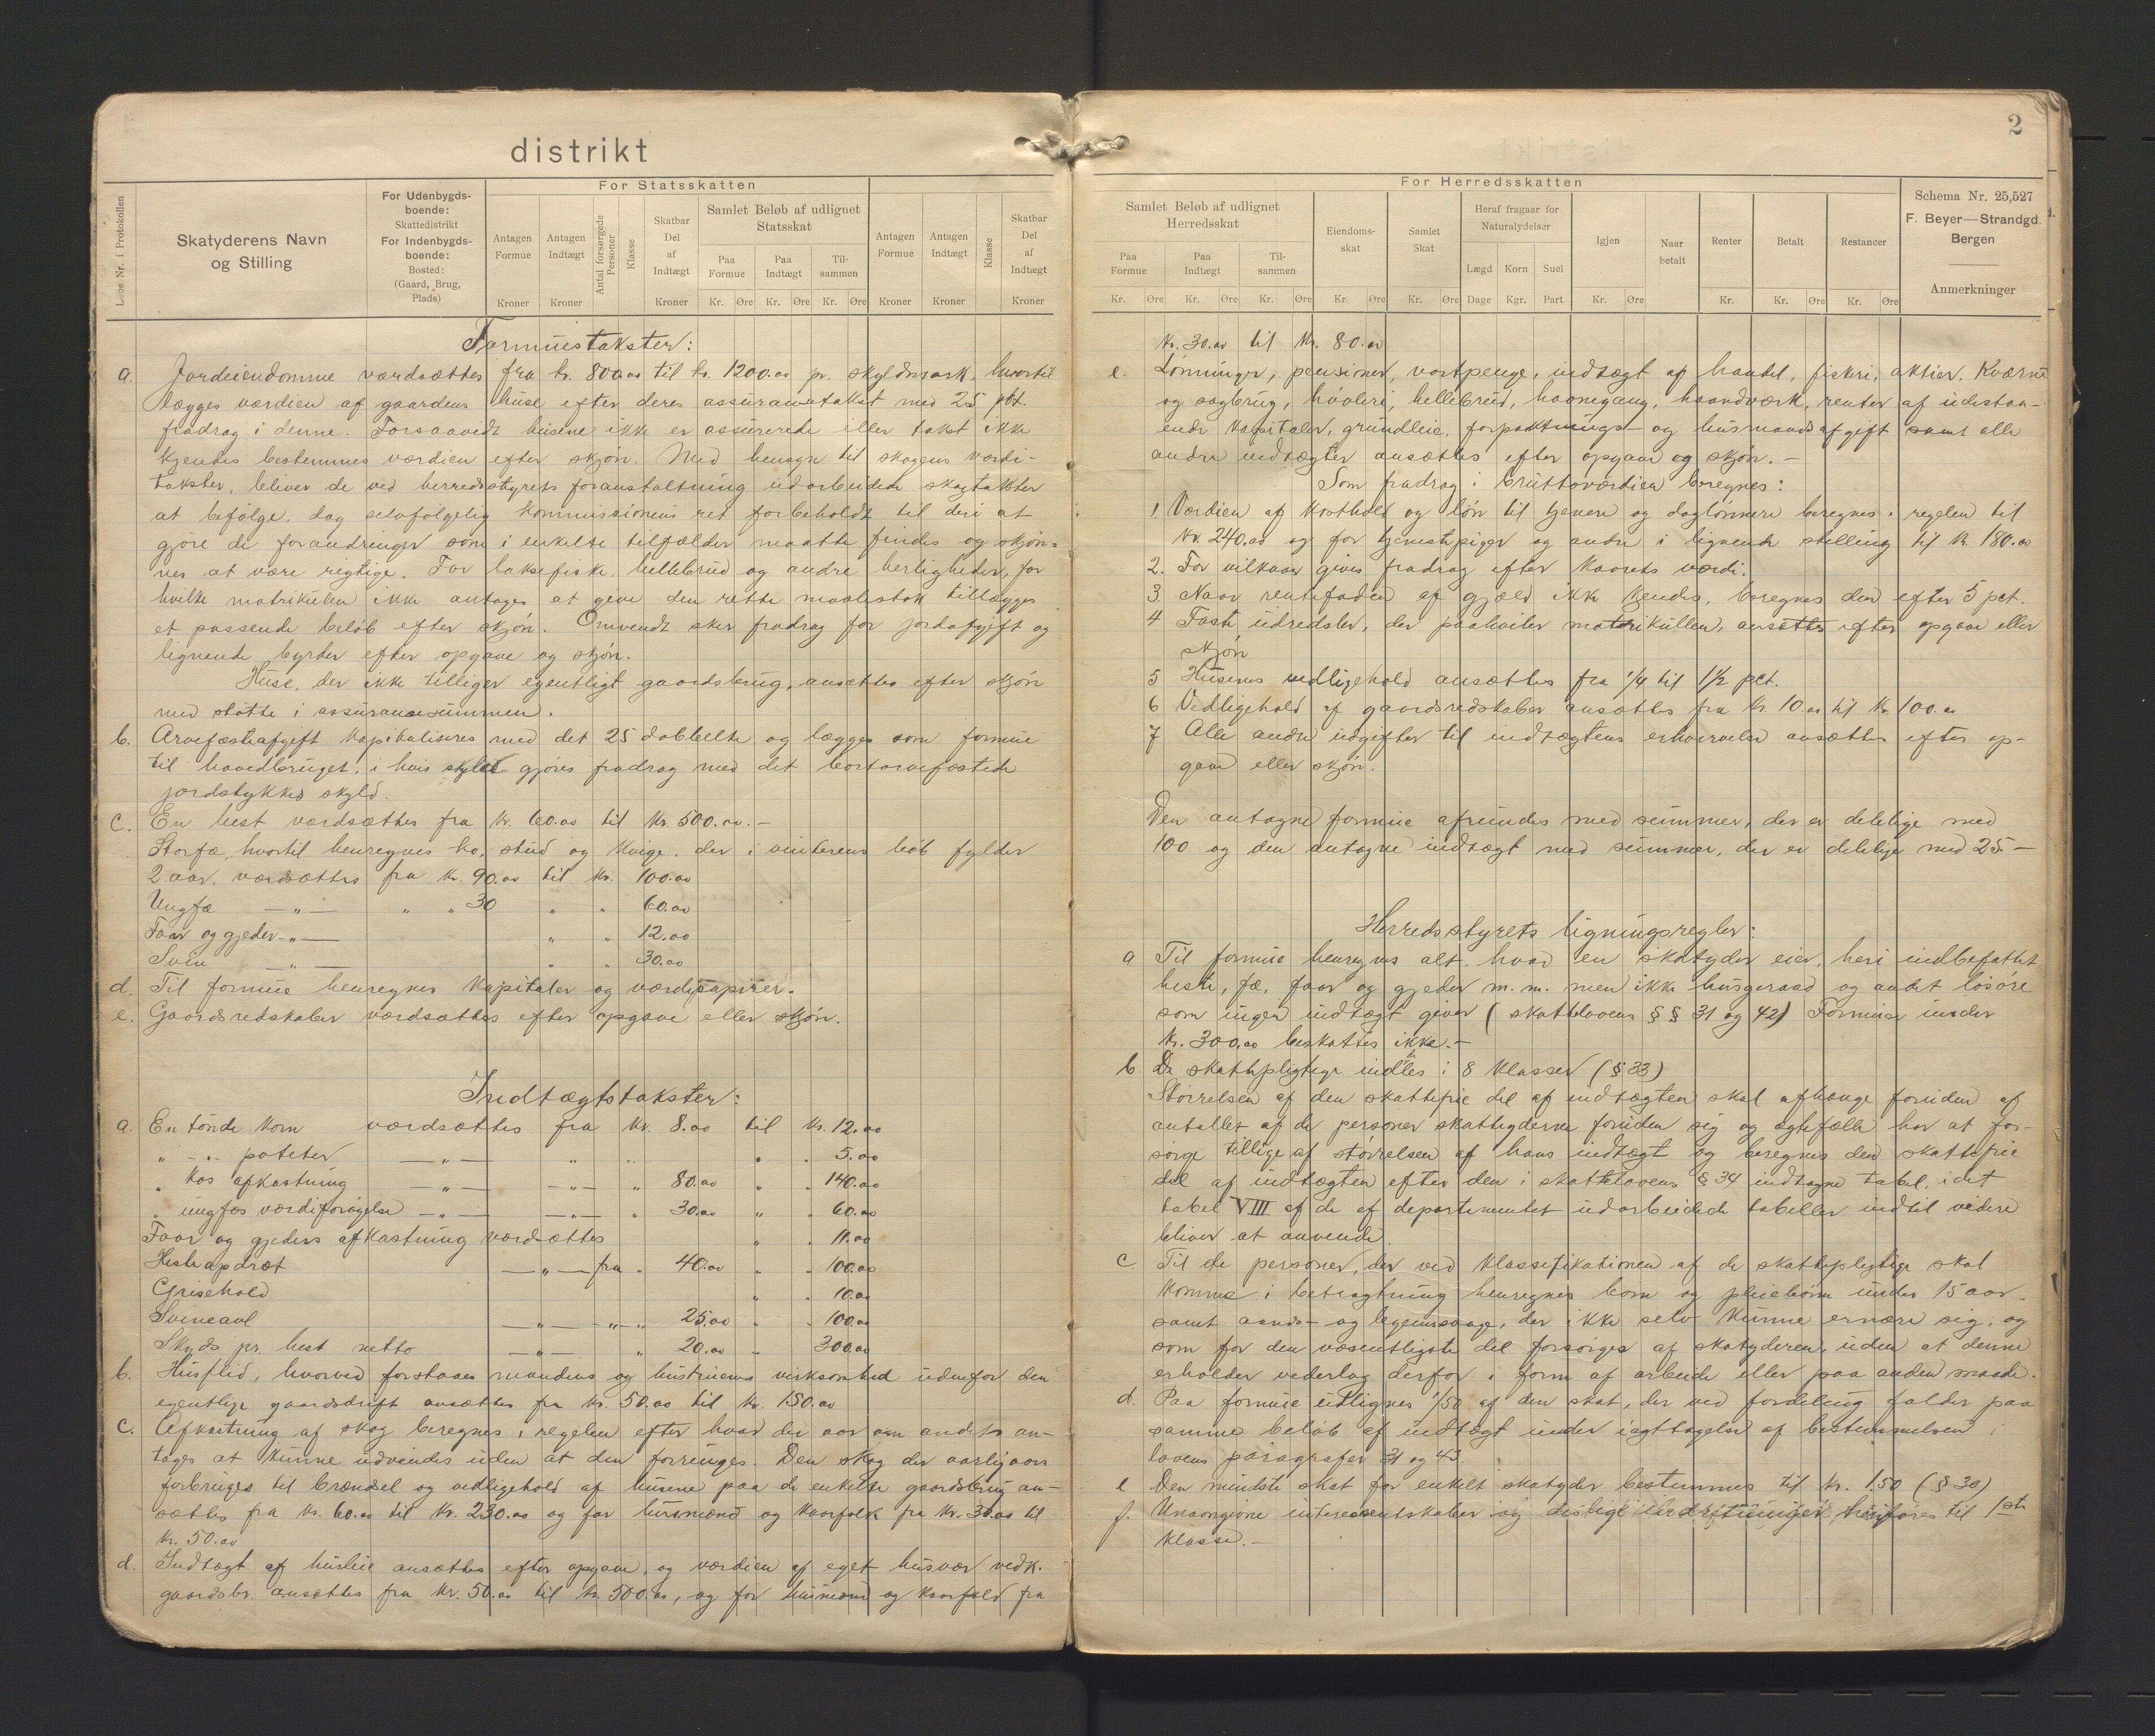 distrikt
Løbe Nr. i Protokollen
Skatyderens Navn
og Stilling
For Udenbygds-
boende:
Skattedistrikt
For Indenbygds-
boende:
Bosted:
(Gaard, Brug,
Plads)
For Statsskatten
Antagen
Formue
Kroner
Antagen
Indtægt
Kroner
Antal forsørgede
Personer
Klasse
Skatbar
Del
af
Indtægt
Kroner
Samlet Beløb af udlignet
Statsskat
Paa
Formue
Paa
Indtægt
Til-
sammen
Kr. Øre Kr. Øre Kr. Øre
Antagen
Formue
Kroner
Antagen
Indtægt
Kroner
Klasse
Skatbar
Del
af
Indtægt
Kroner
Formuestakster:
a. Jordeiendomme værdsættes fra kr. 800.00 til kr. 1200.00 pr. skyldmark, hvortil
lægges værdien af gaardens huse efter deres assurancetakst med 25 pct.
fradrag i denne. Forsaavidt husene ikke er assurerede eller takst ikke
kjendes bestemmes værdien efter skjøn. Med hensyn til skogens værdi-
takster, bliver de ved herredsstyrets foranstaltning udarbeidede skogtakster
at befølge, dog selvfølgelig kommissionens ret forbeholdt til deri at
gjøre de forandringer som i enkelte tilfælder maatte findes og skjøn-
nes at være rigtige. For laksefiske, hellebrud og andre herligheder, for
hvilke matrikulen ikke antages at give den rette maalestok tillægges
et passende beløb efter skjøn. Omvendt sker fradrag for jordafgift og
lignende byrder efter opgave og skjøn.
Huse, der ikke tilligger egentligt gaardsbrug, ansættes efter skjøn
med støtte i assurancesummen.
b. Arvefæsteafgift kapitaliseres med det 25 dobbelte og lægges som formue
til hovedbruget, i hvis skyld gjøres fradrag med det bortarvefæstede
jordstykkes skyld.
c. En hest værdsættes fra kr. 60.00 til kr. 500.00.-
Storfæ, hvortil henregnes ko, stud og kvige, der i vinterens løb fylder
2 aar, værdsættes fra kr. 90.00 til kr. 100.00
Ungfæ — " — " " 30 " " 60.00
Faar og gjeder — " — " " 12.00
Svin — " — " " 30.00
d. Til formue henregnes kapitaler og værdipapirer.
e. Gaardsredskaber værdsættes efter opgave eller skjøn.
Indtægtstakster:
a. En tønde korn værdsættes fra kr. 8.00 til kr. 12.00
" - " - poteter — " — " " " " 5.00
" kos afkastning — " — — " — " 80.00 " " 140.00
" ungfæs værdiforøgelse — " — — " — " 30.00 " " 60.00
Faar og gjeders afkastning værdsættes " " 11.00
Hesteopdræt — " — fra " 40.00 " " 100.00
Grisehold " " 10.00
Svineavl — " — " — " 25.00 " " 100.00
Skyds pr. hest netto — " — " 20.00 - 300.00
b. Husflid, hvorved forstaaes mandens og hustruens virksomhed udenfor den
egentlige gaardsdrift ansættes fra kr. 50.00 til kr. 150.00
c. Afkastning af skog beregnes i regelen efter hvad der aar om andet an-
tages at kunne udvindes uden at den forringes. Den skog der aarligaars
forbruges til brændsel og vedligehold af husene paa de enkelte gaardsbrug an-
sættes fra kr. 60.00 til kr. 230.00 og for husmænd og kaarfolk fra kr. 30.00 til
kr. 50.00
d. Indtægt af husleie ansættes efter opgave, og værdien af eget husvær vedk.
gaardsbr. ansættes fra kr. 50.00 til kr. 500.00, og for husmænd og kaarfolk fra
2
For Herredsskatten
Samlet Beløb af udlignet
Herredsskat
Paa
Formue
Paa
Indtægt
Til-
sammen
Kr. Øre Kr. Øre Kr. Øre
Eiendoms-
skat
Kr. Øre
Samlet
Skat
Kr. Øre
Heraf fragaar for
Naturalydelser
Lægd Korn Suel
Dage Kgr. Part
Igjen
Kr. Øre
Naar
betalt
Renter
Kr.
Betalt
Kr. Øre
Restancer
Kr. Øre
Schema Nr. 25,527
F. Beyer—Strandgd.
Bergen
Anmerkninger
kr. 30.00 til kr. 80.00
e. Lønninger, pensioner, vartpenge, indtægt af handel, fiskeri, aktier, kværne
og sagbrug, høvleri, hellebrud, havnegang, haandværk, renter af udestaa-
ende kapitaler, grundleie, forpaktnings- og husmandsafgift samt alle
andre indtægter ansættes efter opgave og skjøn.-
Som fradrag i bruttoværdien beregnes:
1. Værdien af kosthold og løn til tjenere og daglønnere beregnes i regelen til
kr. 240.00 og for tjenestepiger og andre i lignende stilling til kr. 180.00
2. For vilkaar gives fradrag efter kaarets værdi.
3. Naar rentefoden af gjæld ikke kjendes, beregnes den efter 5 pct.
4 Faste udredsler, der paahviler matrikullen, ansættes efter opgave eller
skjøn
5 Husenes vedligehold ansættes fra 1/4 til 1½ pct.
6 Vedligehold af gaardsredskaber ansættes fra kr. 10.00 til kr. 100.00
7 Alle andre udgifter til indtægtens erhvervelse ansættes efter op-
gave eller skjøn.
Den antagne formue afrundes med summer, der er delelige med
100 og den antagne indtægt med summer, der er delelige med 25.-
Herredsstyrets ligningsregler:
a Til formue henregnes alt, hvad en skatyder eier, heri indbefattet
heste, fæ, faar og gjeder m. m. men ikke husgeraad og andet løsøre
som ingen indtægt giver (skattelovens §§ 31 og 42) Formue under
kr. 300.00 beskattes ikke.-
b De skattepligtige inddeles i 8 klasser (§ 33)
Størrelsen af den skattefrie del af indtægten skal afhænge foruden af
antallet af de personer skatyderne foruden sig og ægtefælle har at for-
sørge tillige af størrelsen af hans indtægt og beregnes den skattefrie
del af indtægten efter den i skattelovens § 34 indtagne tabel, idet
tabel VIII af de af departementet udarbeidede tabeller indtil videre
bliver at anvende.
c. Til de personer, der ved klassifikationen af de skattepligtige skal
komme i betragtning henregnes børn og pleiebørn under 15 aar
samt aands- og legemssvage, der ikke selv kunne ernære sig, og
som for den væsentligste del forsørges af skatyderen, uden at denne
erholder vederlag derfor i form af arbeide eller paa anden maade.
d. Paa formue udlignes 1/50 af den skat, der ved fordeling falder paa
samme beløb af indtægt under iagttagelse af bestemmelsen i
lovens paragrafer 31 og 43
e Den mindste skat for enkelt skatyder bestemmes til kr. 1.50 (§ 30)
f. Uansvgione interessentskaber og deslige indretninger henføres til 1ste
klasse.-